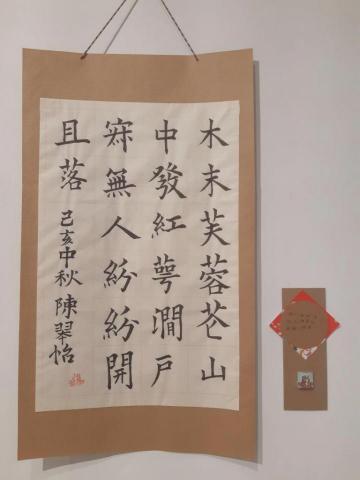 木末芙蓉花山
中發紅萼澗戶
寂無人紛紛開
且落
己亥中秋陳翠怡